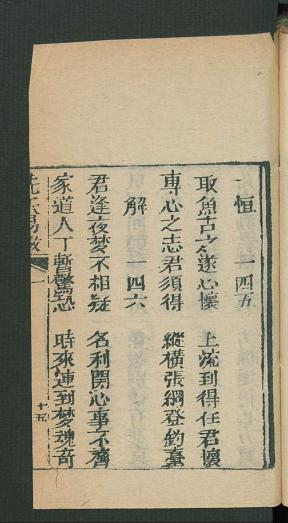 恒 一四五
取魚古之遂心懷 上流到得任君懷
專心之志君須得 縱橫張網登釣臺
解 一四六
君逢夜夢不相疑 名利開心事不齊
家道人丁暫驚恐 時來運到夢魂奇
十五